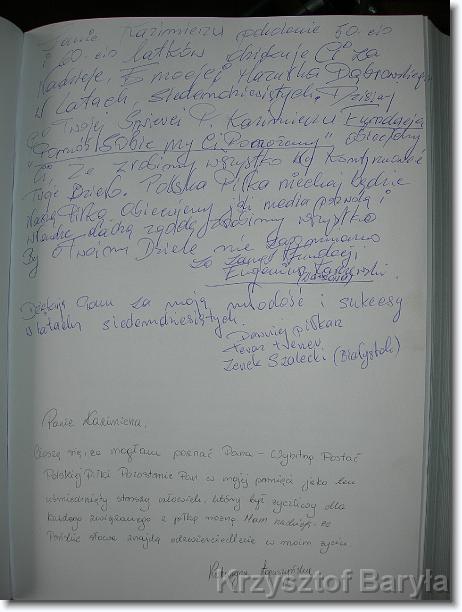 Panie Kazimierzu pokolenie 50-cio
i 60-cio latków dziękuje Ci za
Nadzieje, Emocje i Mazurka Dąbrowskiego
w latach siedemdziesiątych. Dzisiaj
po Twojej śmierci P. Kazimierzu
"Pomóż SOBIE my Ci Pomożemy" obiecujemy
że zrobimy wszystko by kontynuować
Twoje Dzieło. Polska Piłka niechaj będzie
Naszą Piłką obiecujemy jeśli media pozwolą i
władze dadzą zgodę zrobimy wszystko
By o Twoim Dziele nie zapomniano
Za Zarząd Fundacji
Eugeniusz
Dziękuję Panu za moją młodość i sukcesy
w latach siedemdziesiątych.
Dawniej piłkarz
teraz trener
Zenek Szalecki (Białystok)
Panie Kazimierzu,
Cieszę się, że mogłam poznać Pana - Wybitną Postać
Polskiej Piłki Pozostanie Pan w mojej pamięci jako ten
uśmiechnięty starszy człowiek, który był życzliwy dla
każdego związanego z piłką nożną. Mam nadzieję, że
Pańskie słowa znajdą odzwierciedlenie w moim życiu.
Katarzyna
Krzysztof Baryła